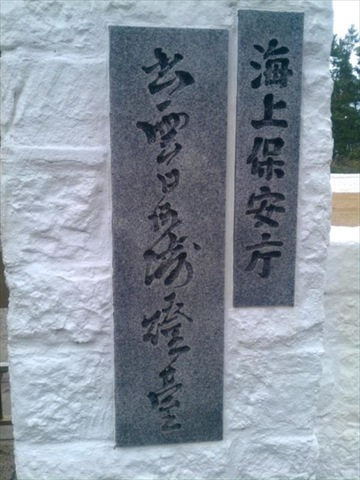 海上保安庁
出雲日御碕燈台